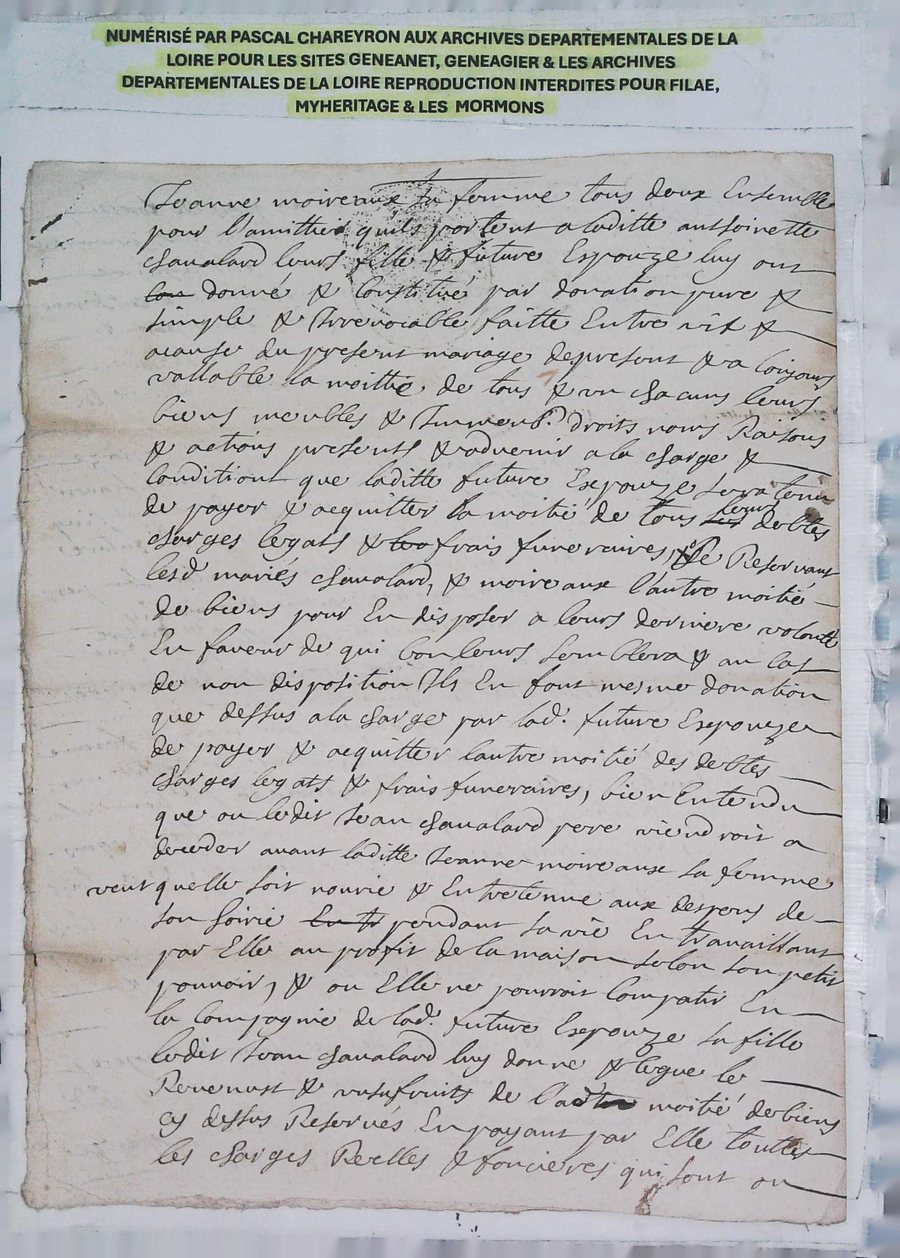 NUMÉRISÉ PAR PASCAL CHAREYRON AUX ARCHIVES DEPARTEMENTALES DE LA
LOIRE POUR LES SITES GENEANET, GENEAGIER & LES ARCHIVES
DEPARTEMENTALES DE LA LOIRE REPRODUCTION INTERDITES POUR FILAE,
MYHERITAGE & LES MORMONS
Jeanne moireaux sa femme tous deux Ensemble
pour l'amithié quils portent a laditte anthoinette
chaualard leurs fille & future Espouze luy ont
donné & Constitué par donation pure &
simple & Irrevocable faitte Entre vif &
acause du present mariage des present & a toujours
vallable la moittié de tous & vn chacuns leurs
biens meubles & Immeub. droits noms Raisons
& actions presents & advenir a la charge &
Conditions que laditte future Espouze sera tenue
de payer & acquitter la moitié de tous leurs debtes
charges legats & frais funeraires, se Reservant
lesd mariés chaualard, & moireaux l'autre moitié
de biens pour En disposer a leurs derniere volonté
En faveur de qui bon leurs semblera & au cas
de non disposition Ils En font mesme donation
que dessus a la charge par lad. future Espouze
de payer & acquitter lautre moitié des debtes
charges legats & frais funeraires, bien Entendu
que ou ledit Jean chaualard pere viendroit a
deceder auant laditte Jeanne moireaux sa femme
veut quelle soit nourie & Entretenue aux despens de
son hoirie pendant sa vie En travaillant
par Elle au profit de la maison selon son petit
pouvoir, & ou Elle ne pourroit Compatir En
la Compagnie de lad. future Espouze sa fille
ledit Jean chaualard luy donne & legue le
Revenust & vsufruits de l'autre moitié de biens
cy dessus Reservés En payant par Elle touttes
les charges Reelles & foncieres qui sont ou